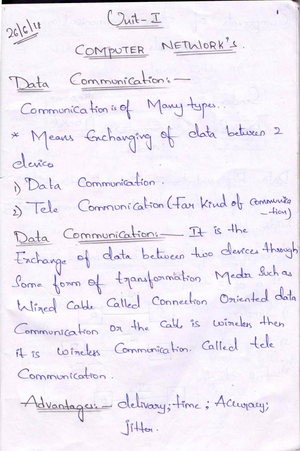 26/6/18
Unit-I
1
COMPUTER NETWORK'S.
Data Communication:-
Communication is of Many types.
* Means Exchanging of data between 2
device
1) Data Communication.
2) Tele Communication (Far kind of communica
-tion)
Data Communication:- It is the
Exchange of data between two devices through
Some form of transformation Media Such as
Wired Cable Called Connection Oriented data
Communication or the Cable is wireless then
it is wireless Communication. Called tele
Communication.
Advantages:- delivary; time; Accuracy;
jitter.